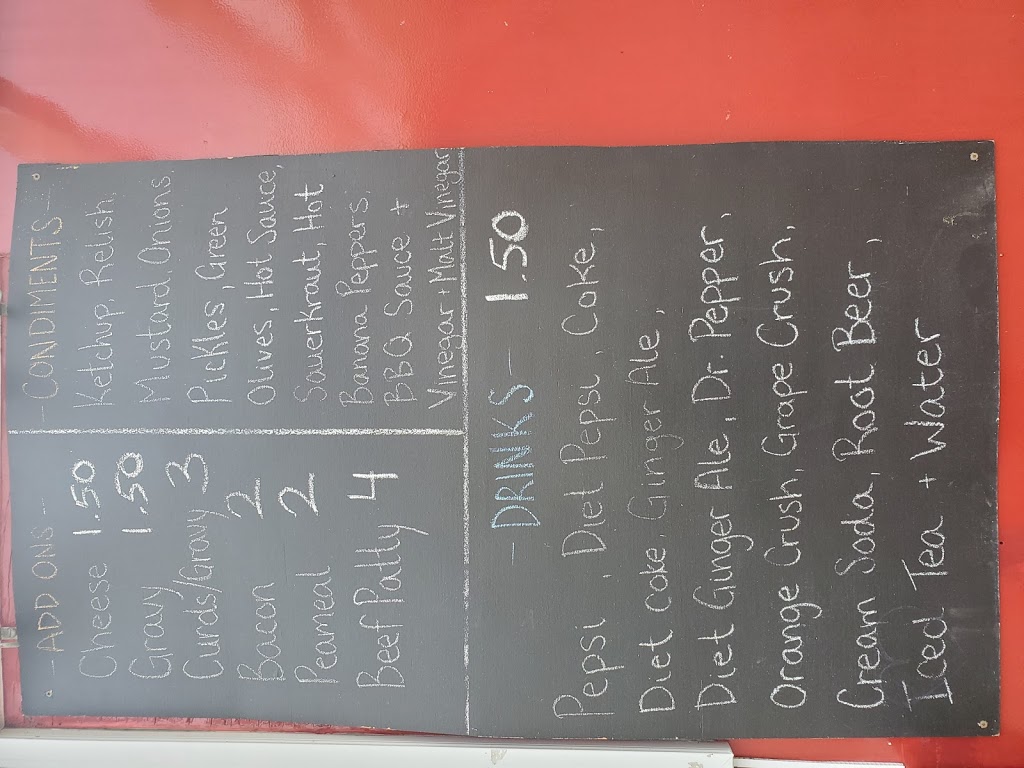 - ADD ONS -
Cheese 1.50
Gravy 1.50
Curds/Gravy 3
Bacon 2
Peameal 2
Beef Patty 4
- CONDIMENTS -
Ketchup, Relish
Mustard, Onions,
Pickles, Green
Olives, Hot Sauce,
Sauerkraut, Hot
Banana Peppers,
BBQ Sauce +
Vinegar + Malt Vinegar
- DRINKS - 1.50
Pepsi, Diet Pepsi, Coke,
Diet Coke, Ginger Ale,
Diet Ginger Ale, Dr. Pepper,
Orange Crush, Grape Crush,
Cream Soda, Root Beer,
Iced Tea + Water